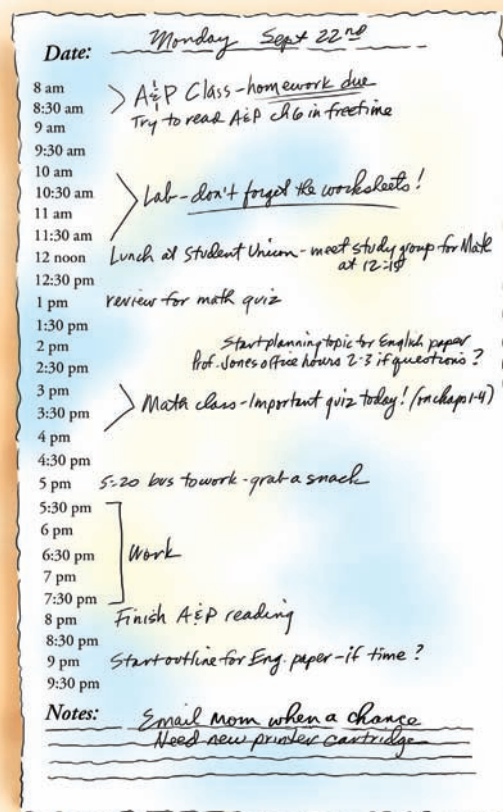 Date: Monday Sept 22nd
8 am
8:30 am
A&P Class - homework due
9 am
Try to read A&P ch6 in freetime
9:30 am
10 am
10:30 am
Lab - don't forget the worksheets!
11 am
11:30 am
12 noon Lunch at Student Union - meet study group for Math
at 12:15
12:30 pm
1 pm review for math quiz
1:30 pm
2 pm Start planning topic for English paper
2:30 pm Prof. Jones office hours 2-3 if questions?
3 pm
3:30 pm Math class - Important quiz today! (on chaps 1-4)
4 pm
4:30 pm
5 pm 5:20 bus to work - grab a snack
5:30 pm
6 pm
6:30 pm Work
7 pm
7:30 pm
8 pm Finish A&P reading
8:30 pm
9 pm Start outline for Eng. paper - if time?
9:30 pm
Notes: Email Mom when a chance
Need new printer cartridge